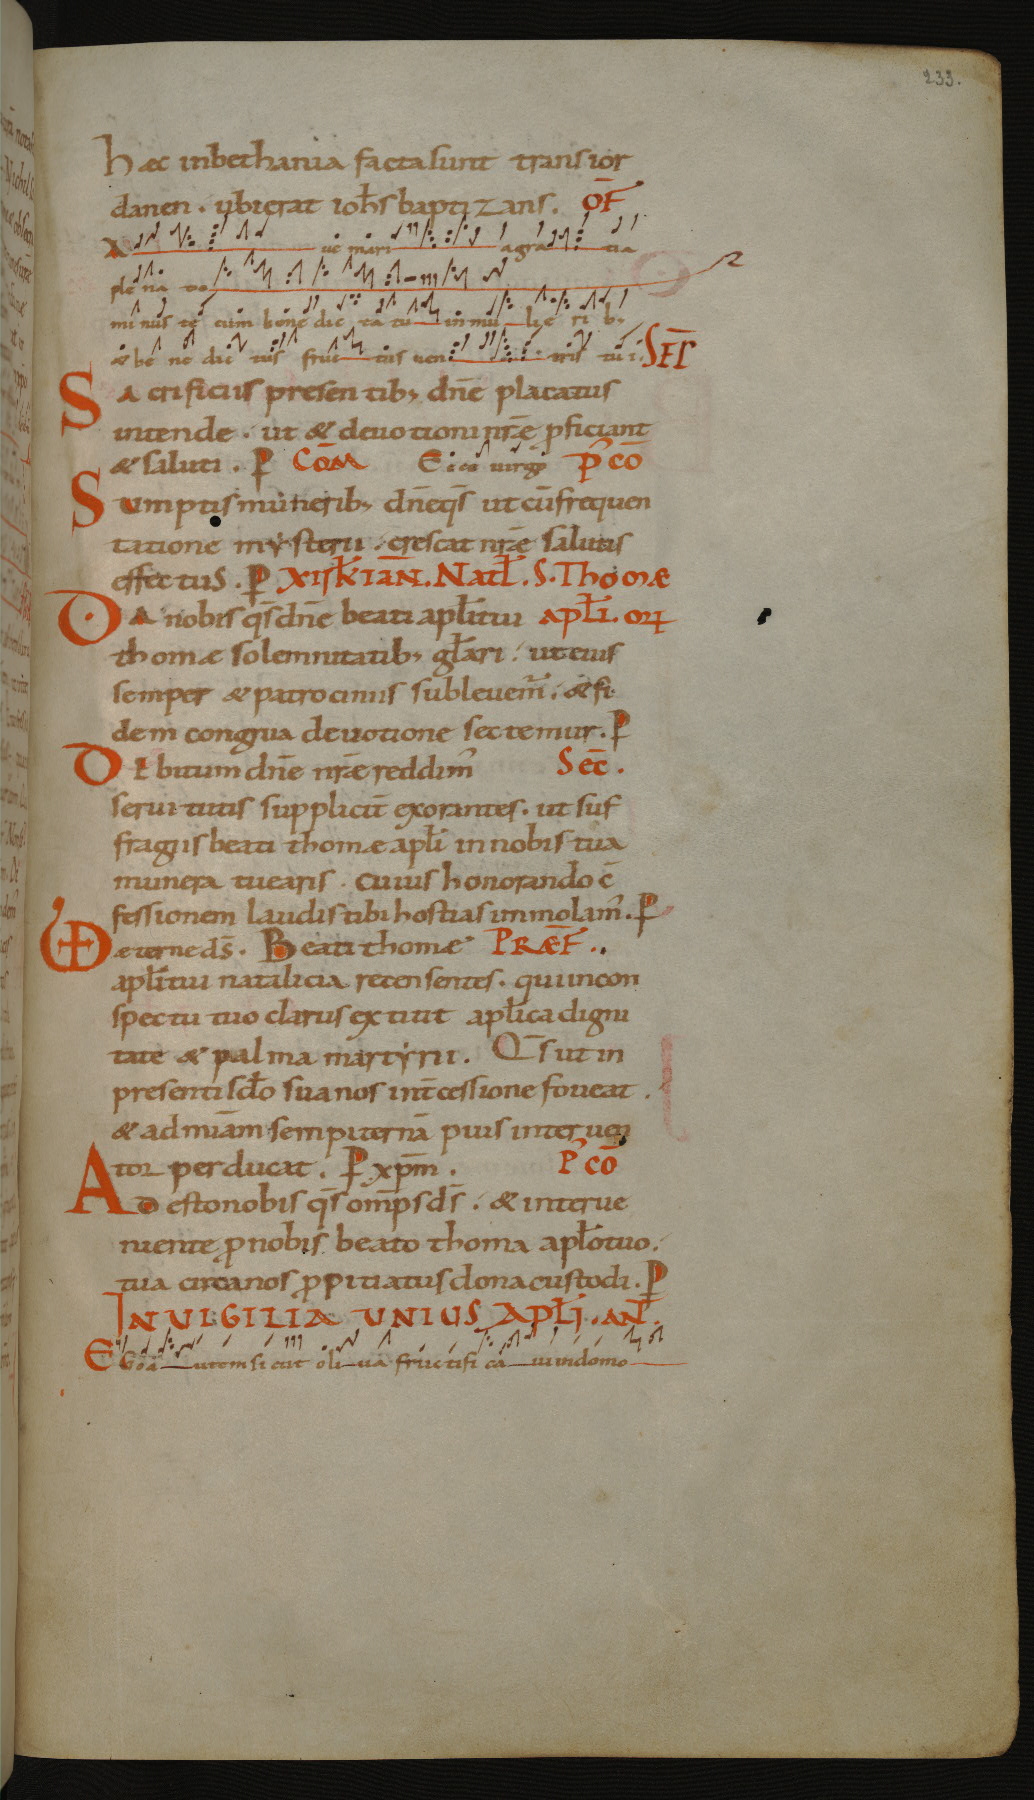 233.
haec inbethania factasunt transior
danen . ubierat ioħs baptizans . OF̄
A ue mari agra tia
ple na do
mi nus te cum bene dic ta tu in mu lie ri b;
& be ne dic tus fruc tus uen tris tu i. SEC̄
Sacrificiis presentib; dn̄e placatus
intende . ut & deuotioni nr̄ae ꝓficiant
& saluti . P COM̄ Ecce uirgo P̄ CŌ
Sumptis munerib; dn̄e qs̄ ut cū frequen
tatione mysterii . crescat nr̄ae salutis
effectus . P XII kl̄ IAN̄ . NATL̄ . S . Thomæ
Da nobis qs̄ dn̄e beati apl̄i tui apl̄i . oꝝ
thomae solemnitatib; gl̄ari . ut eius
semper & patrociniis subleuem̄ . & fi
dem congrua deuotione sectemur . P
Debitum dn̄e nr̄ae reddim̄ Sec̄ .
seruitutis suppliciт exorantes . ut suf
fragiis beati thomae apl̄i in nobis tua
munera tuearis . cuius honorando c̄
fessionem laudis tibi hostias immolam̄ . P
aeterne ds̄ . Beati thomae PRÆF̄ ..
apl̄i tui natalicia recensentes . qui incon
spectu tuo clarus extitit apl̄ica digni
tate & palma martyrii . Qs̄ ut in
presenti sc̄lo sua nos int̄cessione foueat .
& ad mīam sempiternā pius interuen
tor perducat . P xp̄m . P̄ CŌ
Adesto nobis qs̄ omp̄s ds̄ . & interue
niente ꝓ nobis beato thoma apl̄o tuo .
tua circa nos ꝓpitiatus dona custodi . P
IN UIGILIA UNIUS APL̄I . AN̄ .
EGo a utem si cut oli ua fructifi ca ui indomo